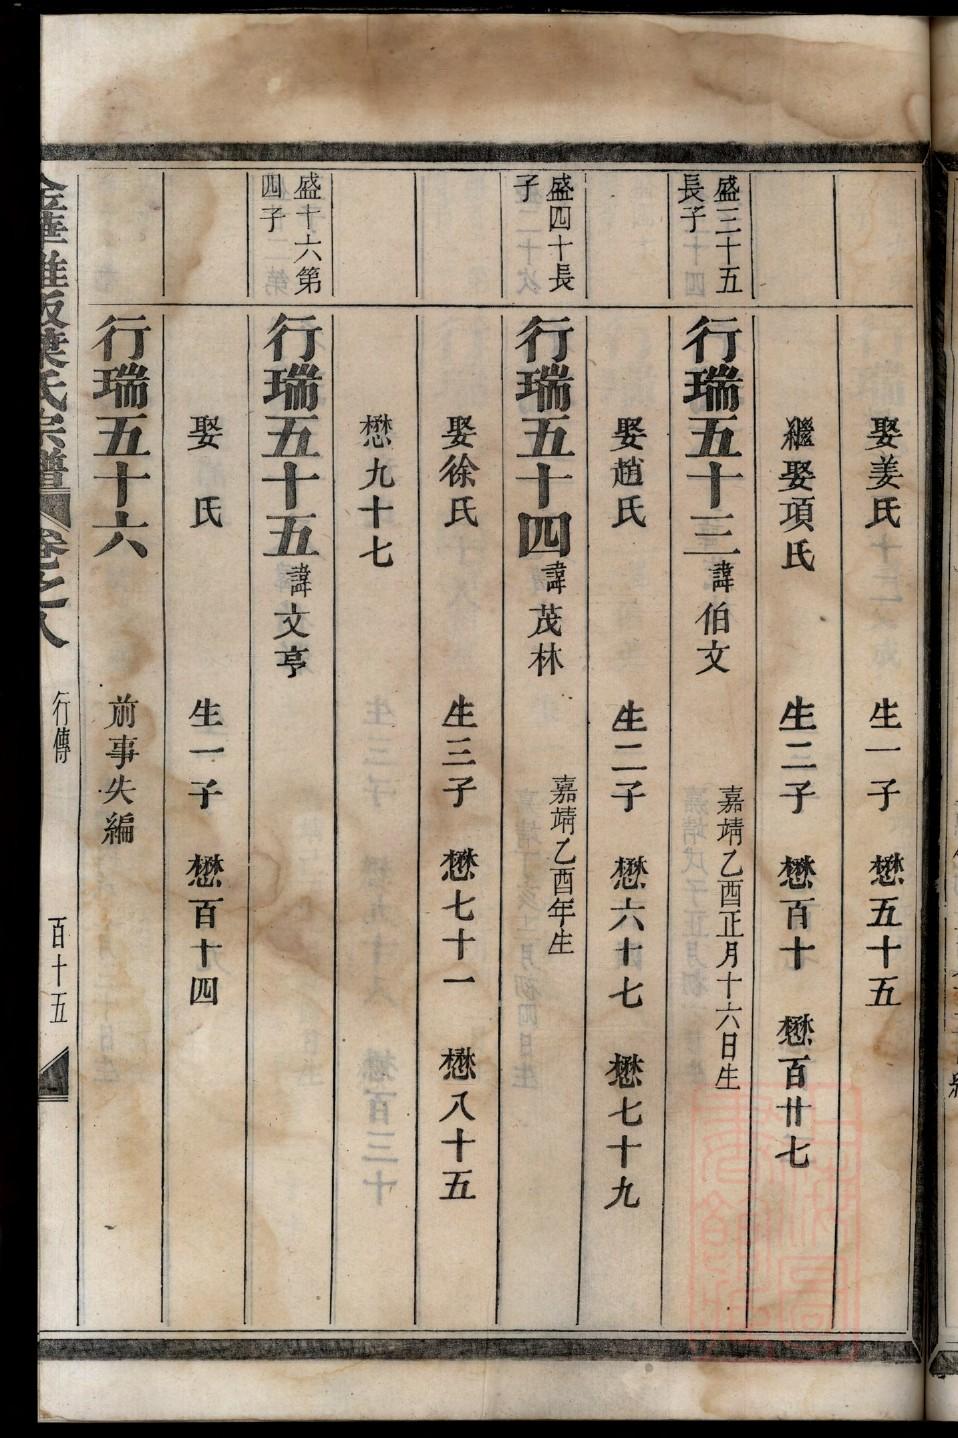 娶姜氏　生一子　懋五十五
繼娶項氏　生二子　懋百十　懋百廿七
盛三十五長子
行瑞五十三　諱伯文　嘉靖乙酉正月十六日生
娶趙氏　生二子　懋六十七　懋七十九
盛四十長子
行瑞五十四　諱茂林　嘉靖乙酉年生
娶徐氏　生三子　懋七十一　懋八十五
懋九十七
盛十六第四子
行瑞五十五　諱文亨
娶　氏　生一子　懋百十四
行瑞五十六　前事失編
葉氏宗譜　卷之八　行傳　百十五